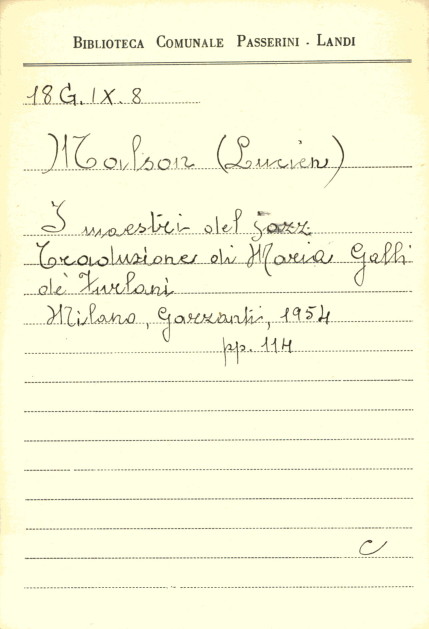 BIBLIOTECA COMUNALE PASSERINI - LANDI
18 G. IX. 8
Malson (Lucien)
I maestri del jazz
Traduzione di Maria Galli
de' Furlani
Milano, Garzanti, 1954
pp. 114
C